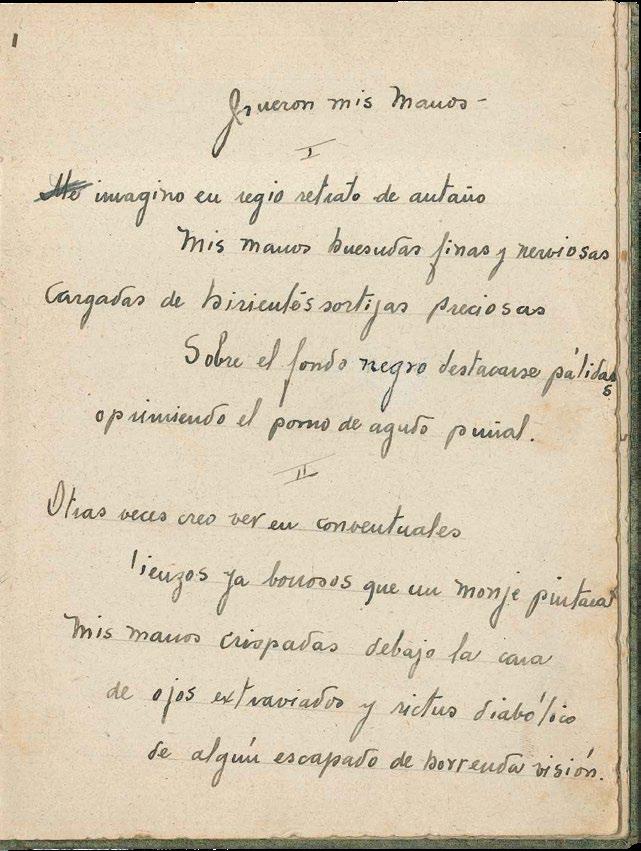 1
Fueron mis manos -
I
Me imagino en regio retrato de antaño
Mis manos huesudas finas y nerviosas
Cargadas de hirientes sortijas preciosas
Sobre el fondo negro destacarse pálidas
oprimiendo el pomo de agudo puñal.
II
Otras veces creo ver en conventuales
lienzos ya borrosos que un monje pintara
Mis manos crispadas debajo la cara
de ojos extraviados y rictus diabólico
de algún escapado de horrenda visión.